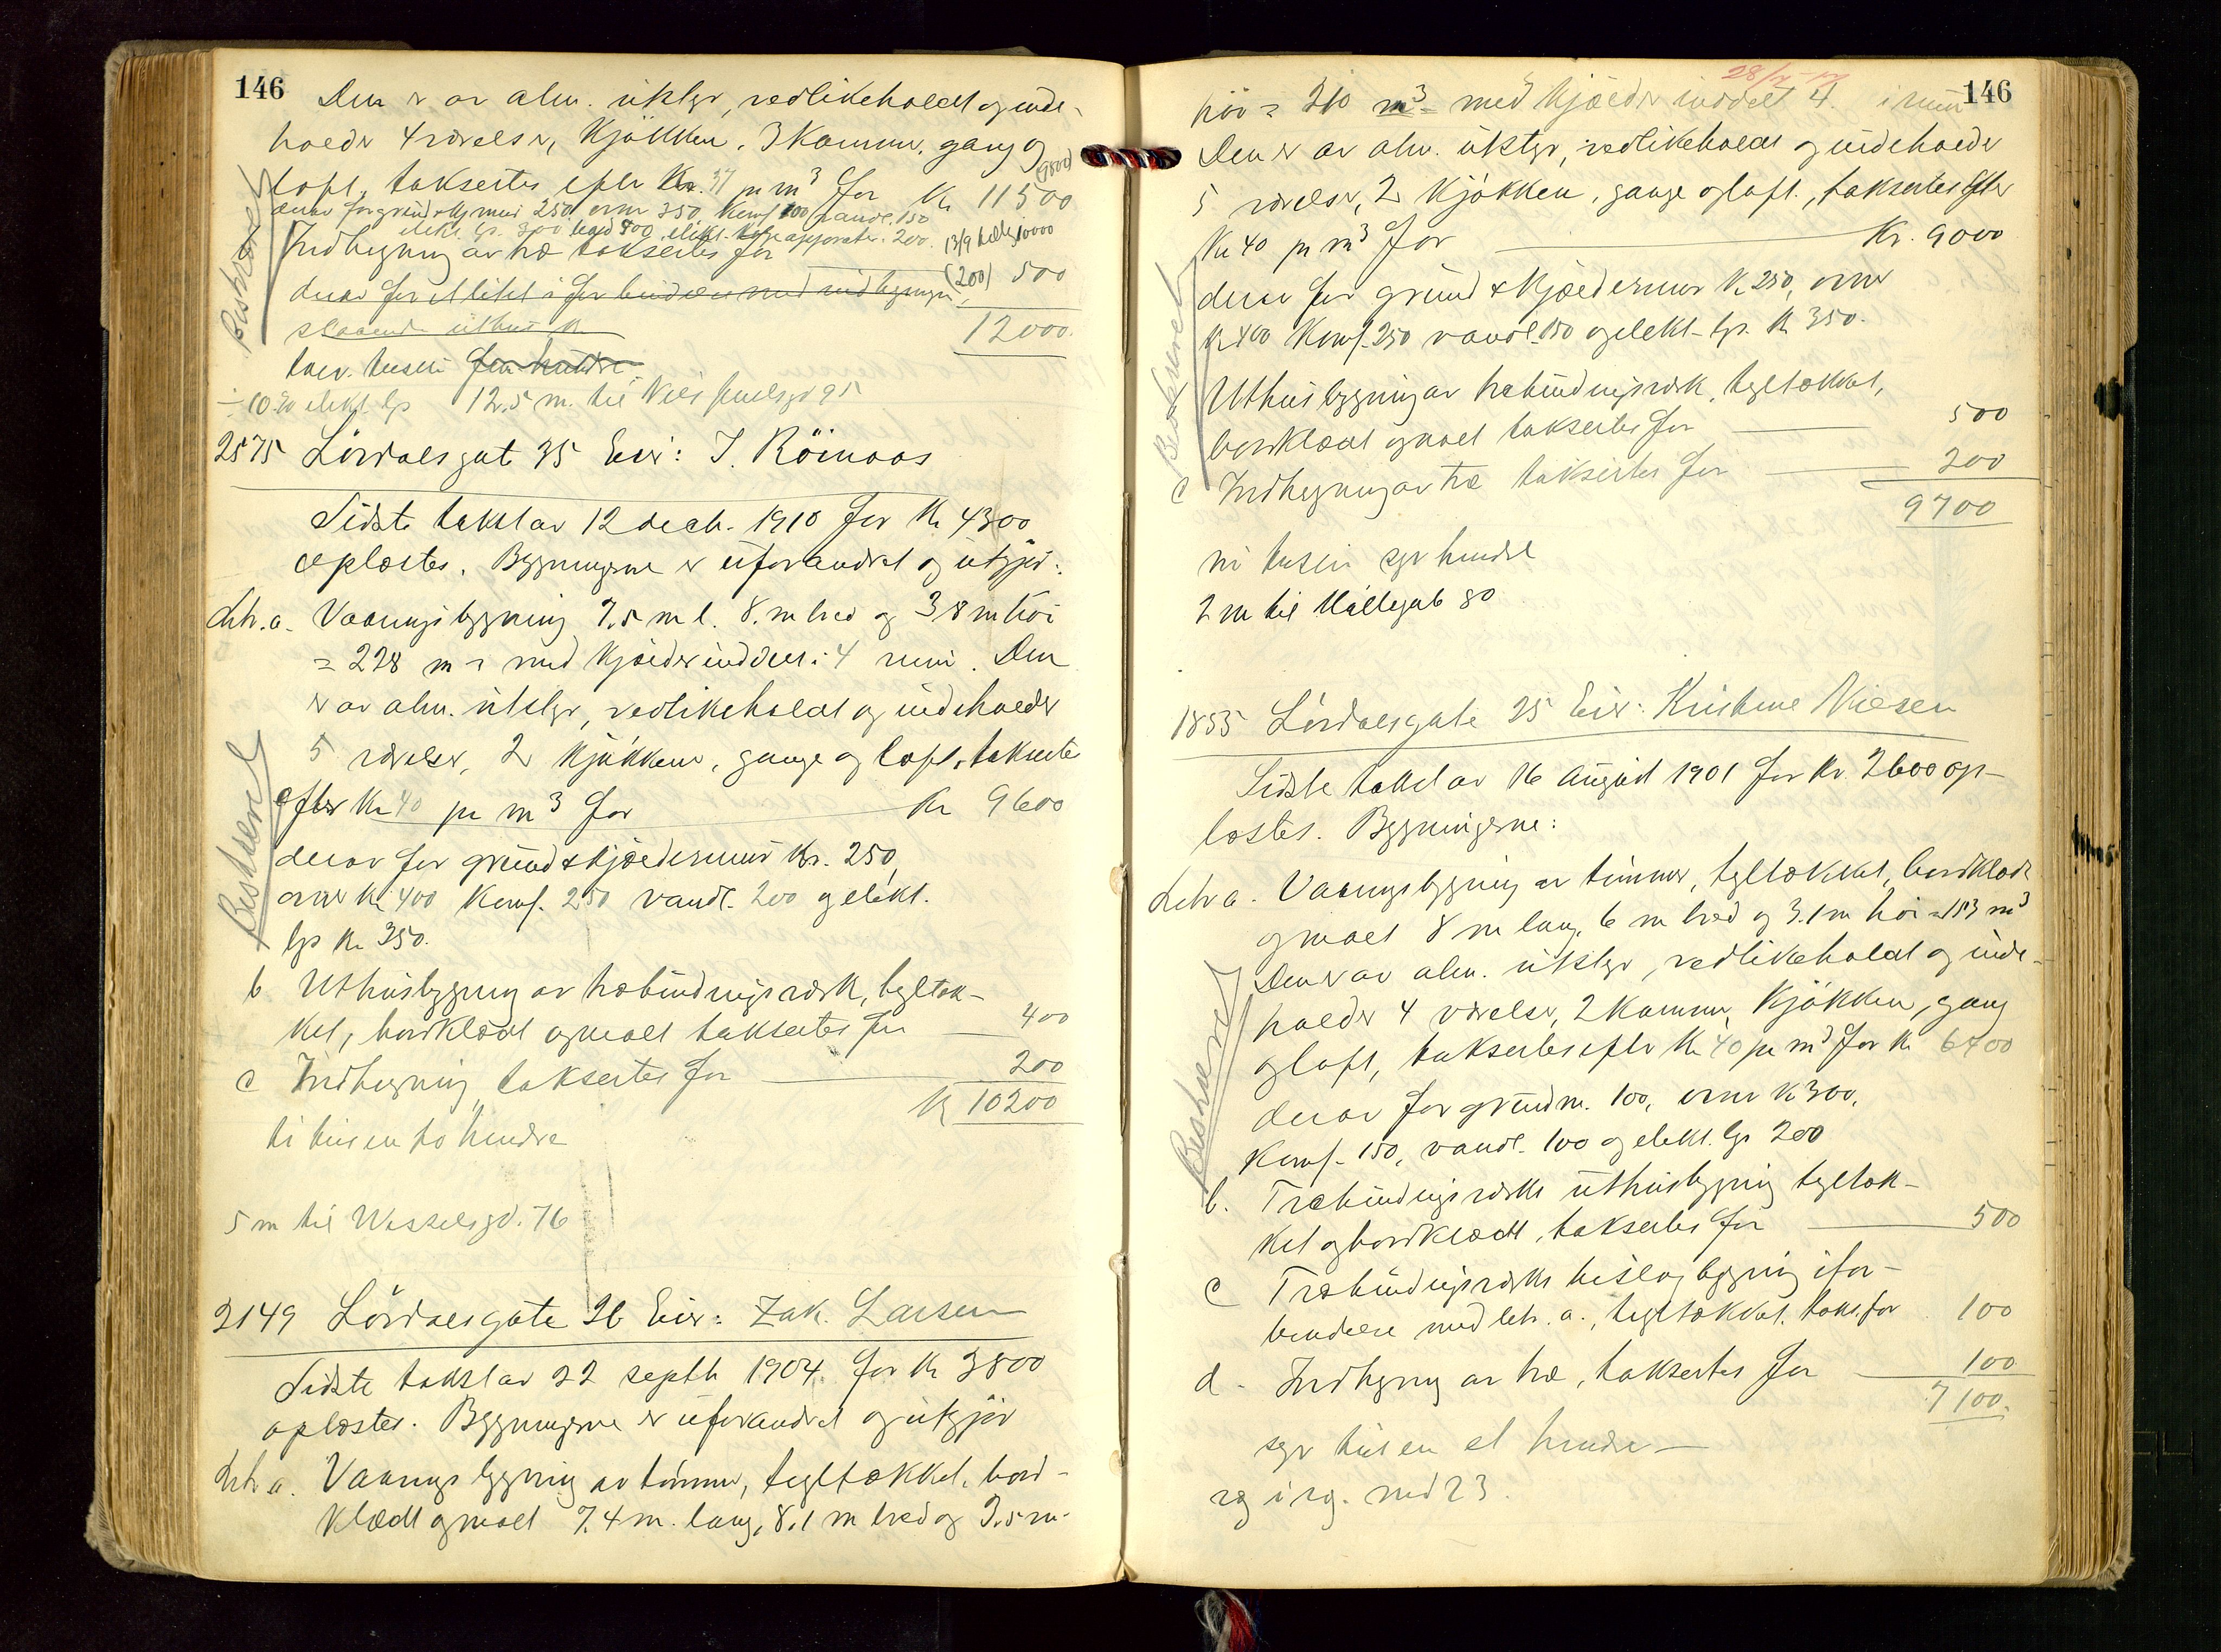 146
Den er av alm. utstyr, vedlikeholdt og inde-
holder 4 værelser, kjökken, 3 kammer, gang og
loft, taksertes efter Kr. 37 pr m³ for Kr 11500
(9800)
derav for grund & kj mur 250, ovner 350, Komf 100, vandl. 150
elekt. lys 300 bad 800, elekt. apparater. 200.
13/9 10000
Indhegning av træ taksertes for (200) 500
derav for et litet i forbindelse med indhegningen
staaende uthus Kr
12000.
tolv tusen fem hundre
÷ 10.20 elekt. lys 12,5 m. til Niels Juelsgd 95
Beskrevet
2575 Lövdalsgat 35 Eier: J. Röinaas
Sidste takst av 12 decb. 1910 for Kr 4300
oplæstes. Bygningerne er uforandret og utgjör:
Litr. a. Vaaningsbygning 7.5 m l. 8. m bred og 3 8 m höi
= 228 m = med kjelder inddelt i 4 rum. Den
er av alm. utstyr, vedlikeholdt og indeholder
5 værelser, 2 kjökkener, gange og loft, taksertes
efter Kr 40 pr m³ for Kr 9600
derav for grund & kjældermur Kr. 250,
ovner Kr 400 Komf. 250 vandl. 200 og elekt.
lys Kr 350.
Beskrevet
b Uthusbygning av træbindingsverk, tegltæk-
ket, bordklædt og malt taksertes for 400
c Indhegning taksertes for 200
Kr 10200
ti tusen to hundre
5 m til Wesselsgd. 76
2149 Lövdalsgate 26 Eier: Zak. Larsen
Sidste takst av 22 septb 1904 for Kr 3800
oplæstes. Bygningerne er uforandret og utgjör
Litr a. Vaaningsbygning av tömmer, tegltækket, bord-
klædt og malt 7.4 m. lang, 8,1 m bred og 3.5 m-
28/
146
höi = 210 m³ = med kjælder inddelt 4 i rum
Den er av alm. utstyr, vedlikeholdt og indeholder
5 værelser, 2 kjökken, gange og loft, taksertes efter
Kr 40 pr m³ for Kr. 9000
derav for grund & kjældermur Kr 250, ovner
Kr 400 Komf. 250 vandl. 150 og elekt. lys. Kr 350.
Beskrevet
Uthusbygning av træbindingsverk, tegltækket,
bordklædt og malt taksertes for 500
c Indhegning av træ taksertes for 200
9700
ni tusen syv hundre
2 m til Möllegat 80
1855 Lövdalsgate 25 Eier: Kristine Nielsen
Sidste takst av 16 august 1901 for Kr. 2600 op-
læstes. Bygningerne:
Litr a. Vaaningsbygning av tömmer, tegltækket, bordklædt
og malt 8 m lang, 6 m bred og 3.1 m höi = 153 m³
Den er av alm. utstyr, vedlikeholdt og inde-
holder 4 værelser, 2 kammer, kjökken, gang
og loft, taksertes efter Kr 40 pr m³ for Kr 6400
derav for grundm. 100, ovner Kr 300,
Komf. 150, vandl. 100 og elekt. lys 200
Beskrevet
b. Træbindingsverks uthusbygning tegltæk-
ket og bordklædt, taksertes for 500
c Træbindingsverks bislagbygning i for-
bindelse med litr. a., tegltækket, takst. for 100
d. Indhegning av træ, taksertes for 100
7100.
syv tusen et hundre
væg i væg. med 23.